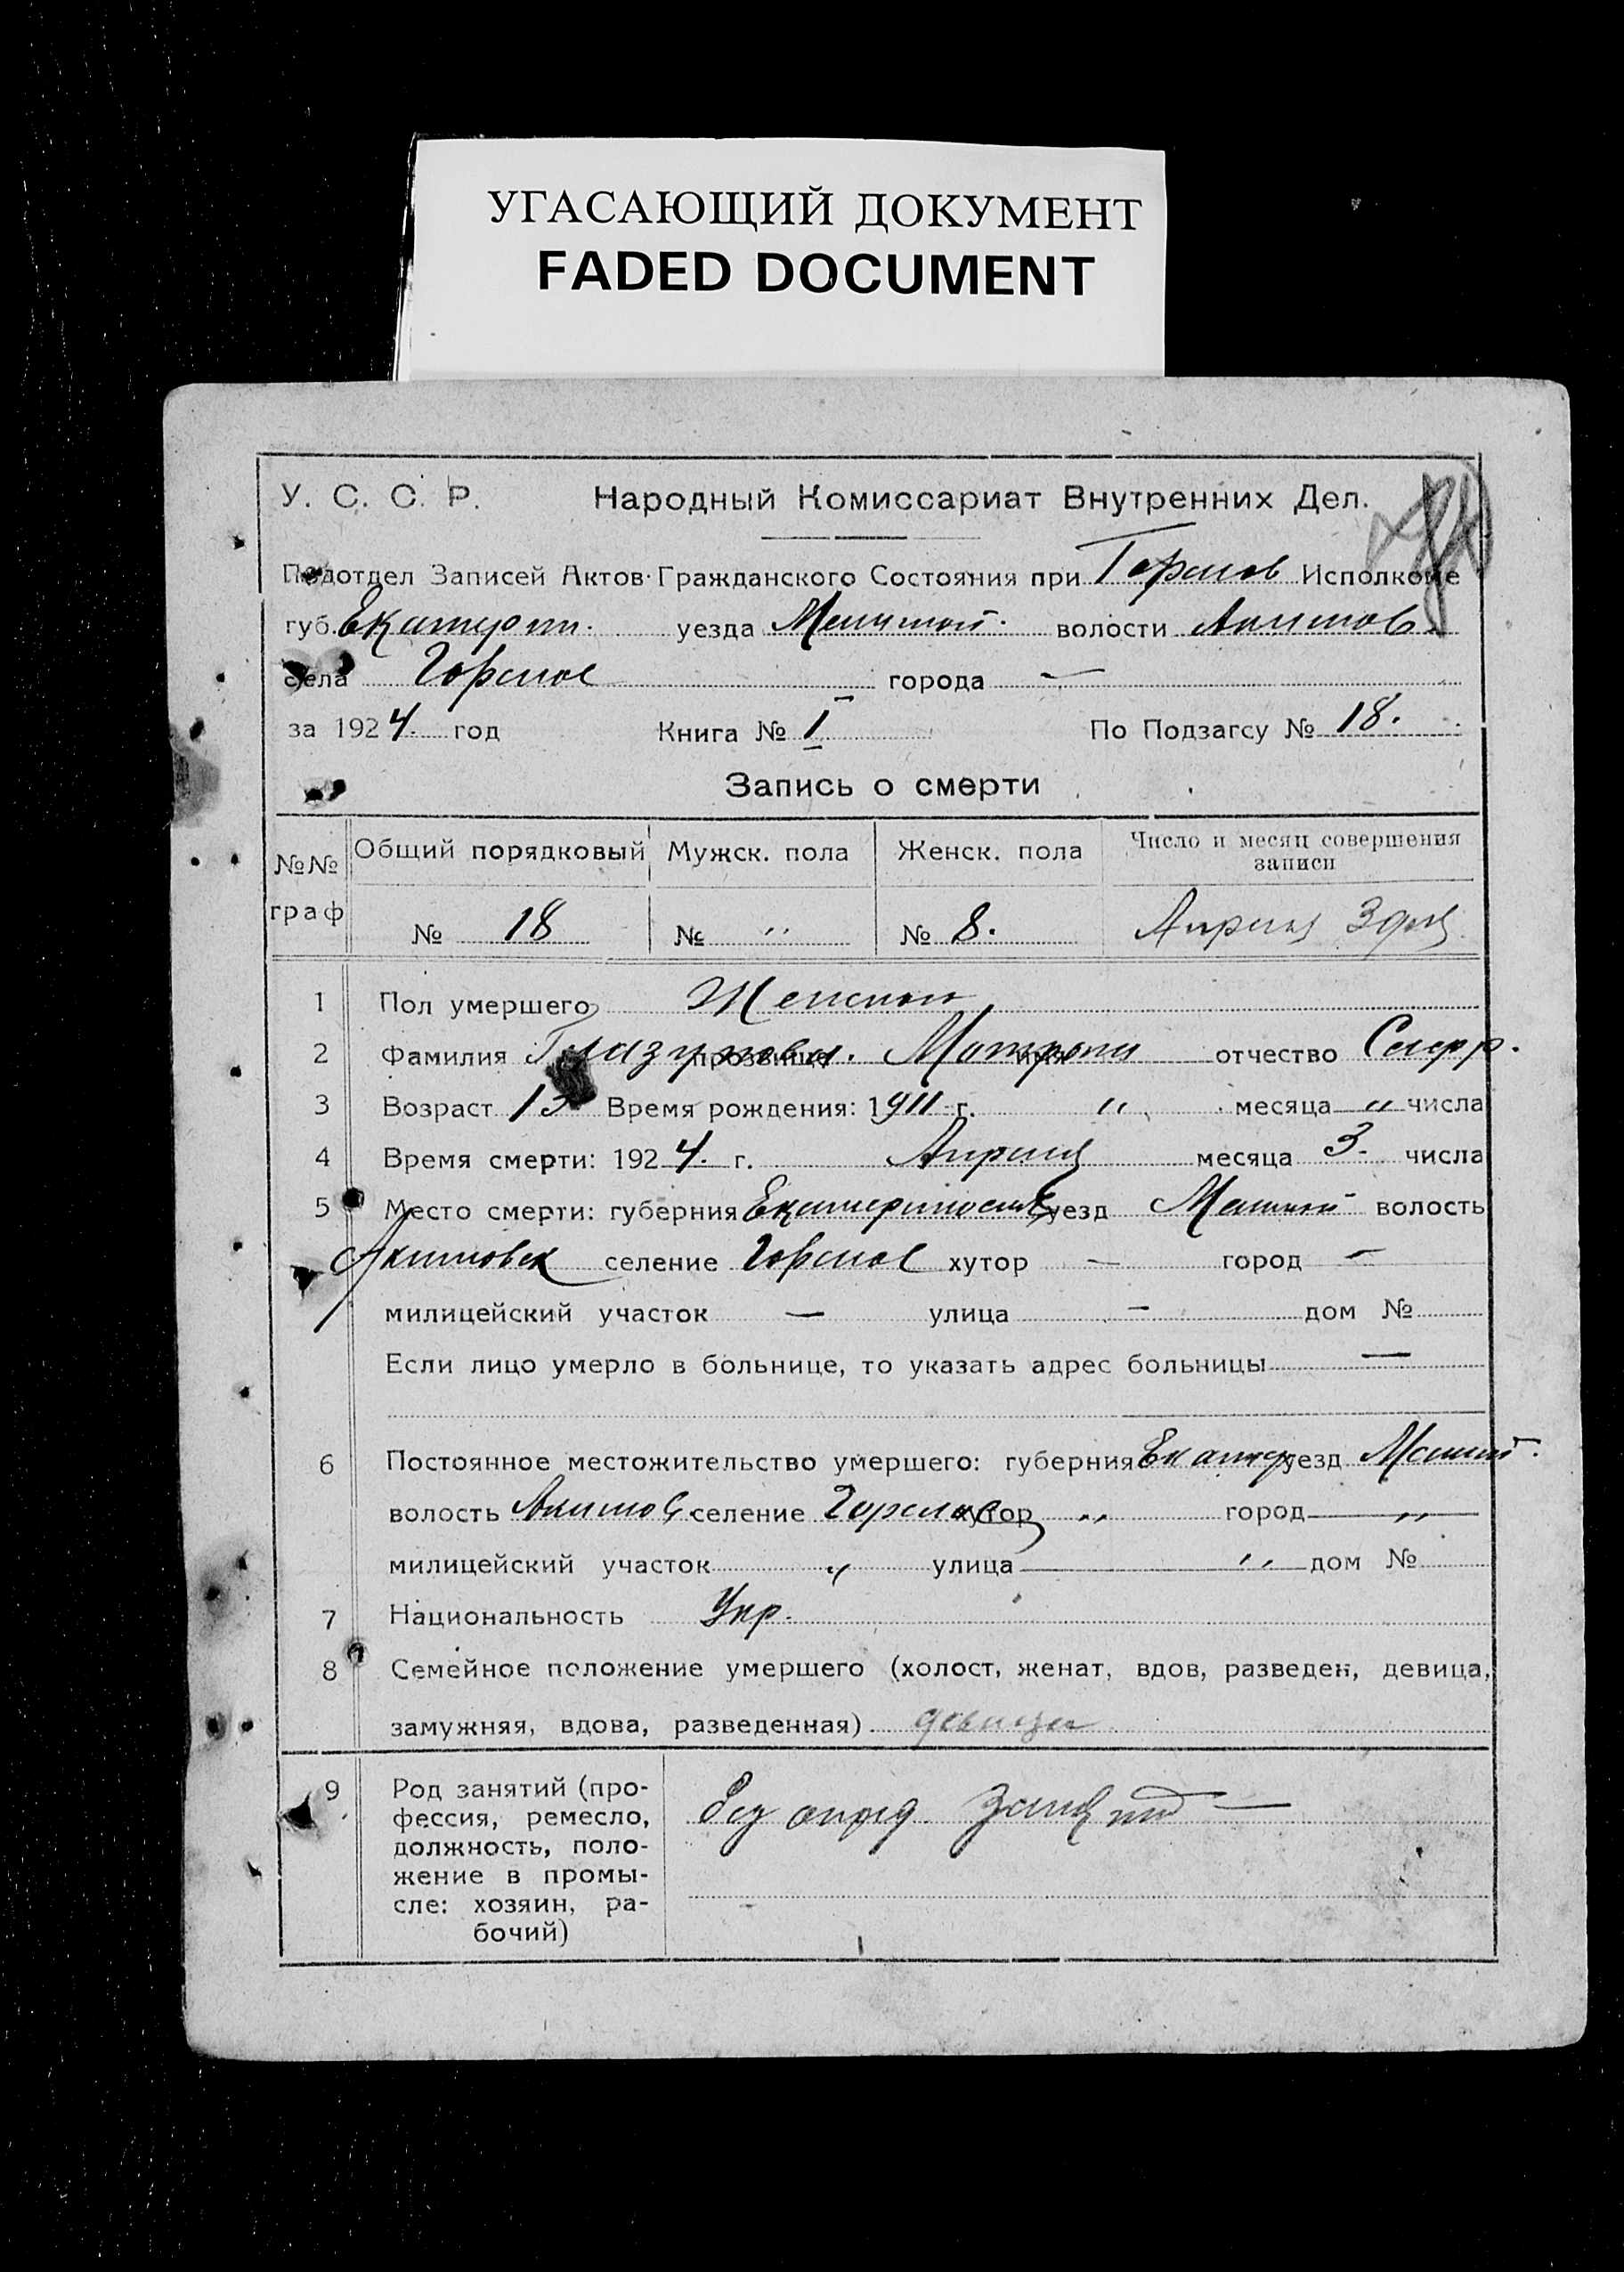 УГАСАЮЩИЙ ДОКУМЕНТ
FADED DOCUMENT
У. С. С. Р. Народный Комиссариат Внутренних Дел.
Подотдел Записей Актов Гражданского Состояния при Горсков Исполкоме
губ. Екатерин. уезда волости Акимов.
села Горское города —
за 1924. год Книга № I По Подзагсу № 18.
Запись о смерти
№№ граф Общий порядковый Мужск. пола Женск. пола Число и месяц совершения записи
№ 18 № " № 8. Апреля 3 дня
1 Пол умершего Женский
2 Фамилия Глазунова. прозвище Матрона имя отчество
3 Возраст 13 Время рождения: 1911 г. " месяца " числа
4 Время смерти: 1924. г. Апреля месяца 3. числа
5 Место смерти: губерния Екатеринослав уезд волость
Акимовск селение Горское хутор — город —
милицейский участок — улица — дом №
Если лицо умерло в больнице, то указать адрес больницы —
6 Постоянное местожительство умершего: губерния Екатер уезд
волость Акимов. селение Горское хутор " город "
милицейский участок " улица " дом №
7 Национальность Укр.
8 Семейное положение умершего (холост, женат, вдов, разведен, девица,
замужняя, вдова, разведенная) девица
9 Род занятий (про-
фессия, ремесло,
должность, поло-
жение в промы-
сле: хозяин, ра-
бочий)
без опред. занятий —